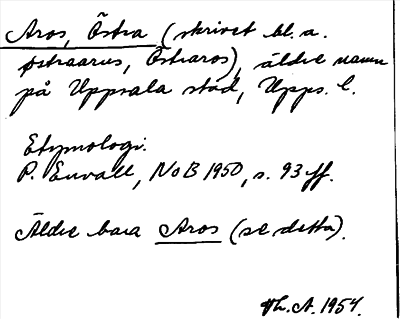 Aros, Östra (skrivet bl. a.
østraarus, Östraros), äldre namn
på Uppsala stad, Upps. l.
Etymologi:
P. Envall, NoB 1950, s. 93 ff.
Äldre bara Aros (se detta).
Th. A. 1954.